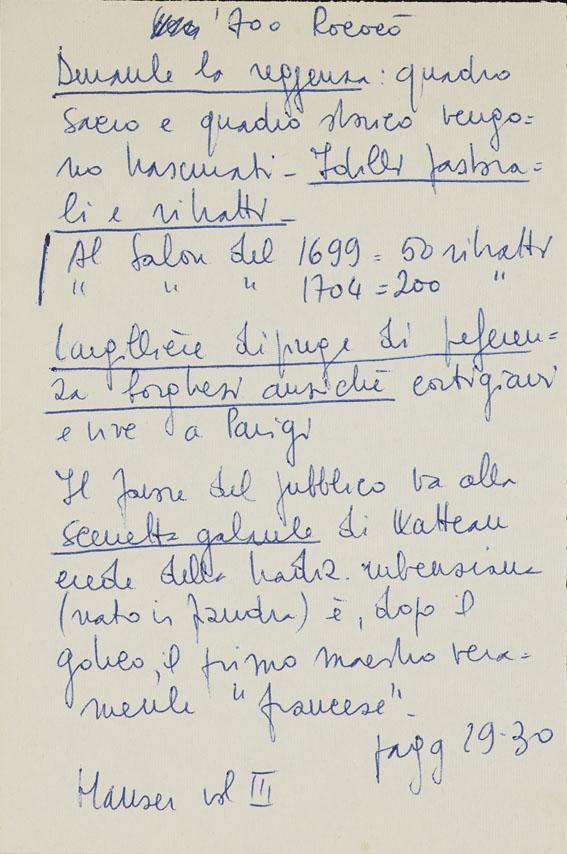 '700 Rococò
Durante la reggenza: quadro
sacro e quadro storico vengo=
no trascurati - Idilli pastora=
li e ritratti -
Al Salon del 1699 = 50 ritratti
" " " 1704 = 200 "
Largillière dipinge di preferen=
za borghesi anziché cortigiani
e vive a Parigi
Il favore del pubblico va alla
scenetta galante di Watteau
erede della tradiz. rubensiana
(nato in Fiandra) è, dopo il
gotico, il primo maestro vera=
mente "francese".
pagg 29-30
Hauser vol III